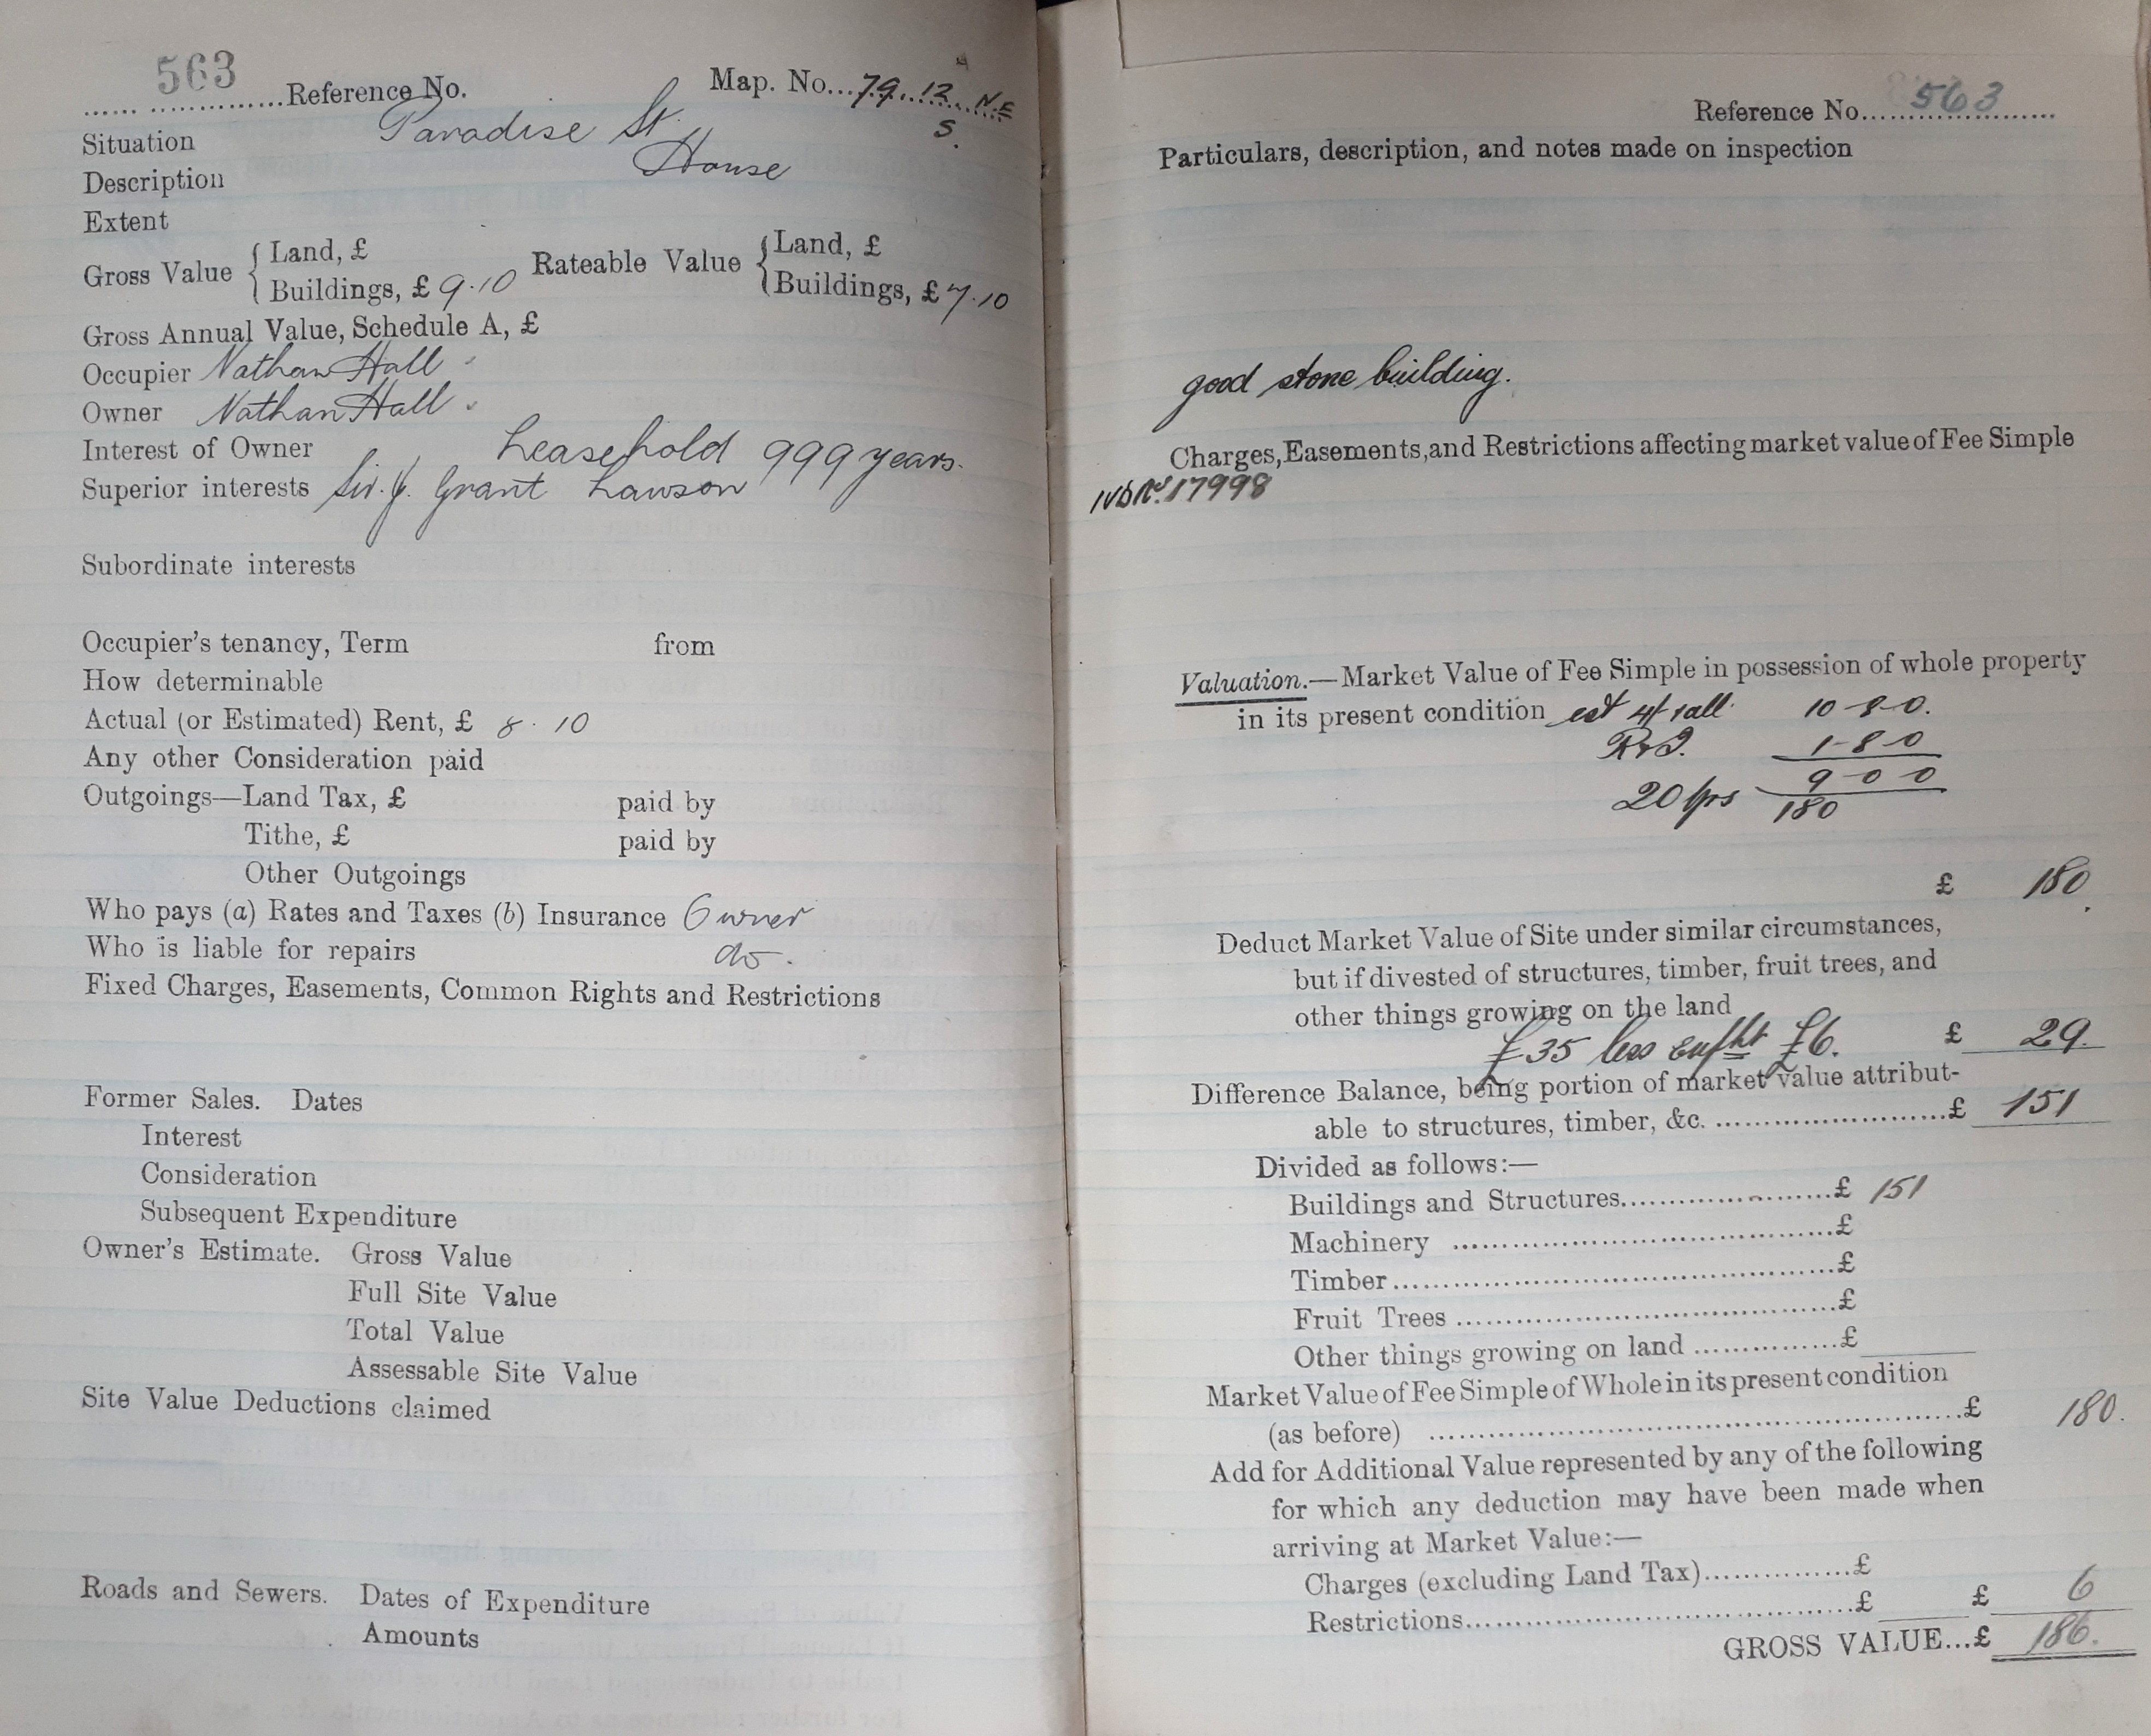 563
Reference No. Map. No. 79.12 N.E
S.
Situation Paradise St.
Description House
Extent
Gross Value { Land, £ Rateable Value { Land, £
Buildings, £ 9.10 Buildings, £ 7.10
Gross Annual Value, Schedule A, £
Occupier Nathan Hall
Owner Nathan Hall
Interest of Owner Leasehold 999 years.
Superior interests Sir. J. Grant Lawson
Subordinate interests
Occupier's tenancy, Term from
How determinable
Actual (or Estimated) Rent, £ 8.10
Any other Consideration paid
Outgoings—Land Tax, £ paid by
Tithe, £ paid by
Other Outgoings
Who pays (a) Rates and Taxes (b) Insurance Owner
Who is liable for repairs do.
Fixed Charges, Easements, Common Rights and Restrictions
Former Sales. Dates
Interest
Consideration
Subsequent Expenditure
Owner's Estimate. Gross Value
Full Site Value
Total Value
Assessable Site Value
Site Value Deductions claimed
Roads and Sewers. Dates of Expenditure
Amounts
Reference No. 563
Particulars, description, and notes made on inspection
good stone building.
Charges, Easements, and Restrictions affecting market value of Fee Simple
No. 17998
Valuation.—Market Value of Fee Simple in possession of whole property
in its present condition est 4/ 10-8-0.
1-8-0
9-0-0
20 yrs 180
£ 180
Deduct Market Value of Site under similar circumstances,
but if divested of structures, timber, fruit trees, and
other things growing on the land
£35 less £6. £ 29.
Difference Balance, being portion of market value attribut-
able to structures, timber, &c. £ 151
Divided as follows:—
Buildings and Structures £ 151
Machinery £
Timber £
Fruit Trees £
Other things growing on land £
Market Value of Fee Simple of Whole in its present condition
(as before) £ 180.
Add for Additional Value represented by any of the following
for which any deduction may have been made when
arriving at Market Value:—
Charges (excluding Land Tax) £
Restrictions £ £ 6
GROSS VALUE...£ 186.